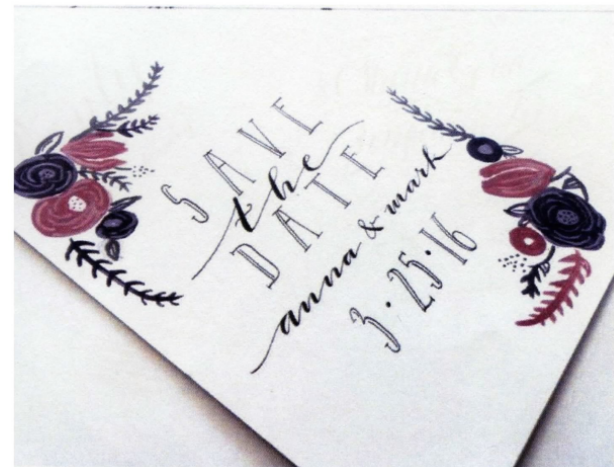 SAVE
the
DATE
anna & mark
3·25·16